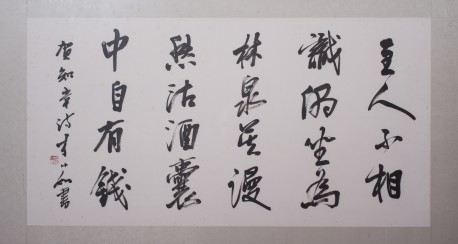 主人不相
識偶坐為
林泉莫漫
愁沽酒囊
中自有錢
賀知章詩 書